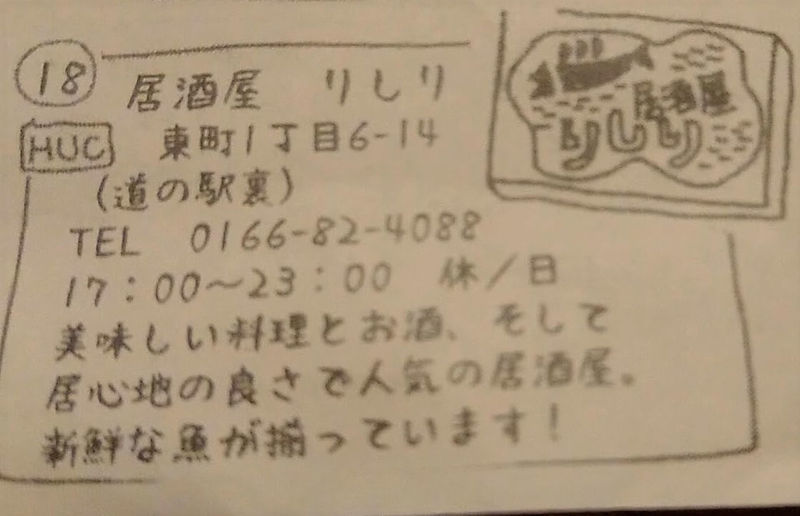 18
居酒屋 りしり
HUC 東町1丁目6-14
(道の駅裏)
TEL 0166-82-4088
17:00〜23:00 休/日
美味しい料理とお酒、そして
居心地の良さで人気の居酒屋。
新鮮な魚が揃っています!
居酒屋
りしり